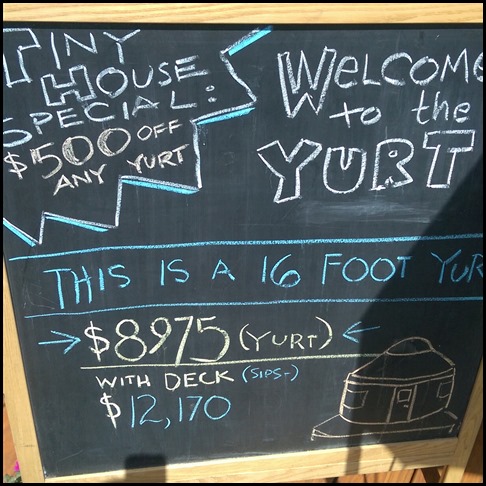 TINY
HOUSE
SPECIAL:
$500 OFF
ANY YURT
WELCOME
to the
YURT
THIS IS A 16 FOOT YUR
$8975 (YURT)
WITH DECK (SIPS-)
$12,170